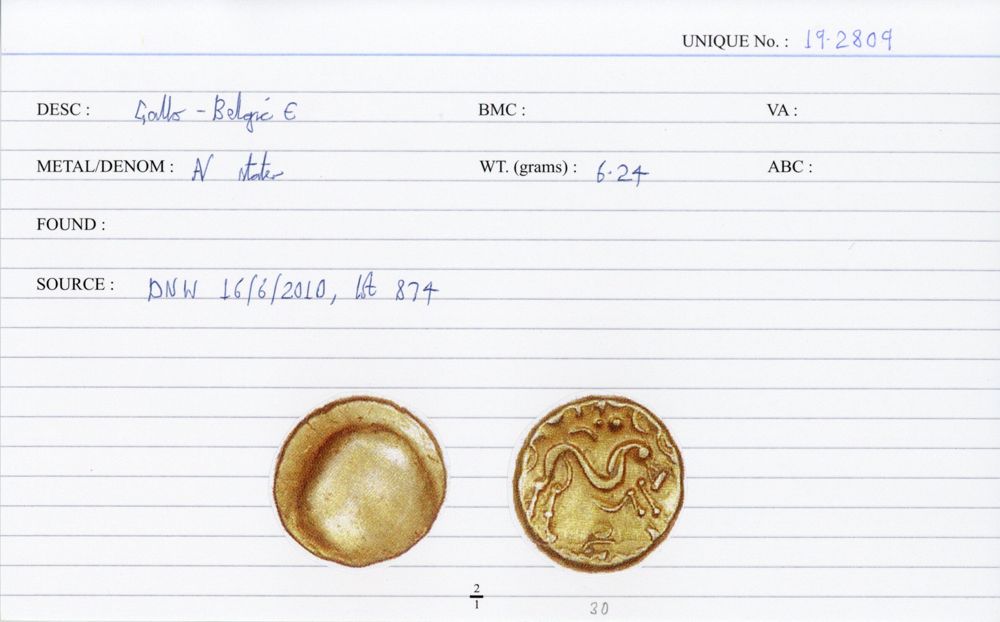 UNIQUE No. : 19-2809
DESC : Gallo-Belgic E BMC : VA :
METAL/DENOM : AV stater WT. (grams) : 6.24 ABC :
FOUND :
SOURCE : DNW 16/6/2010, lot 874
2
1
30